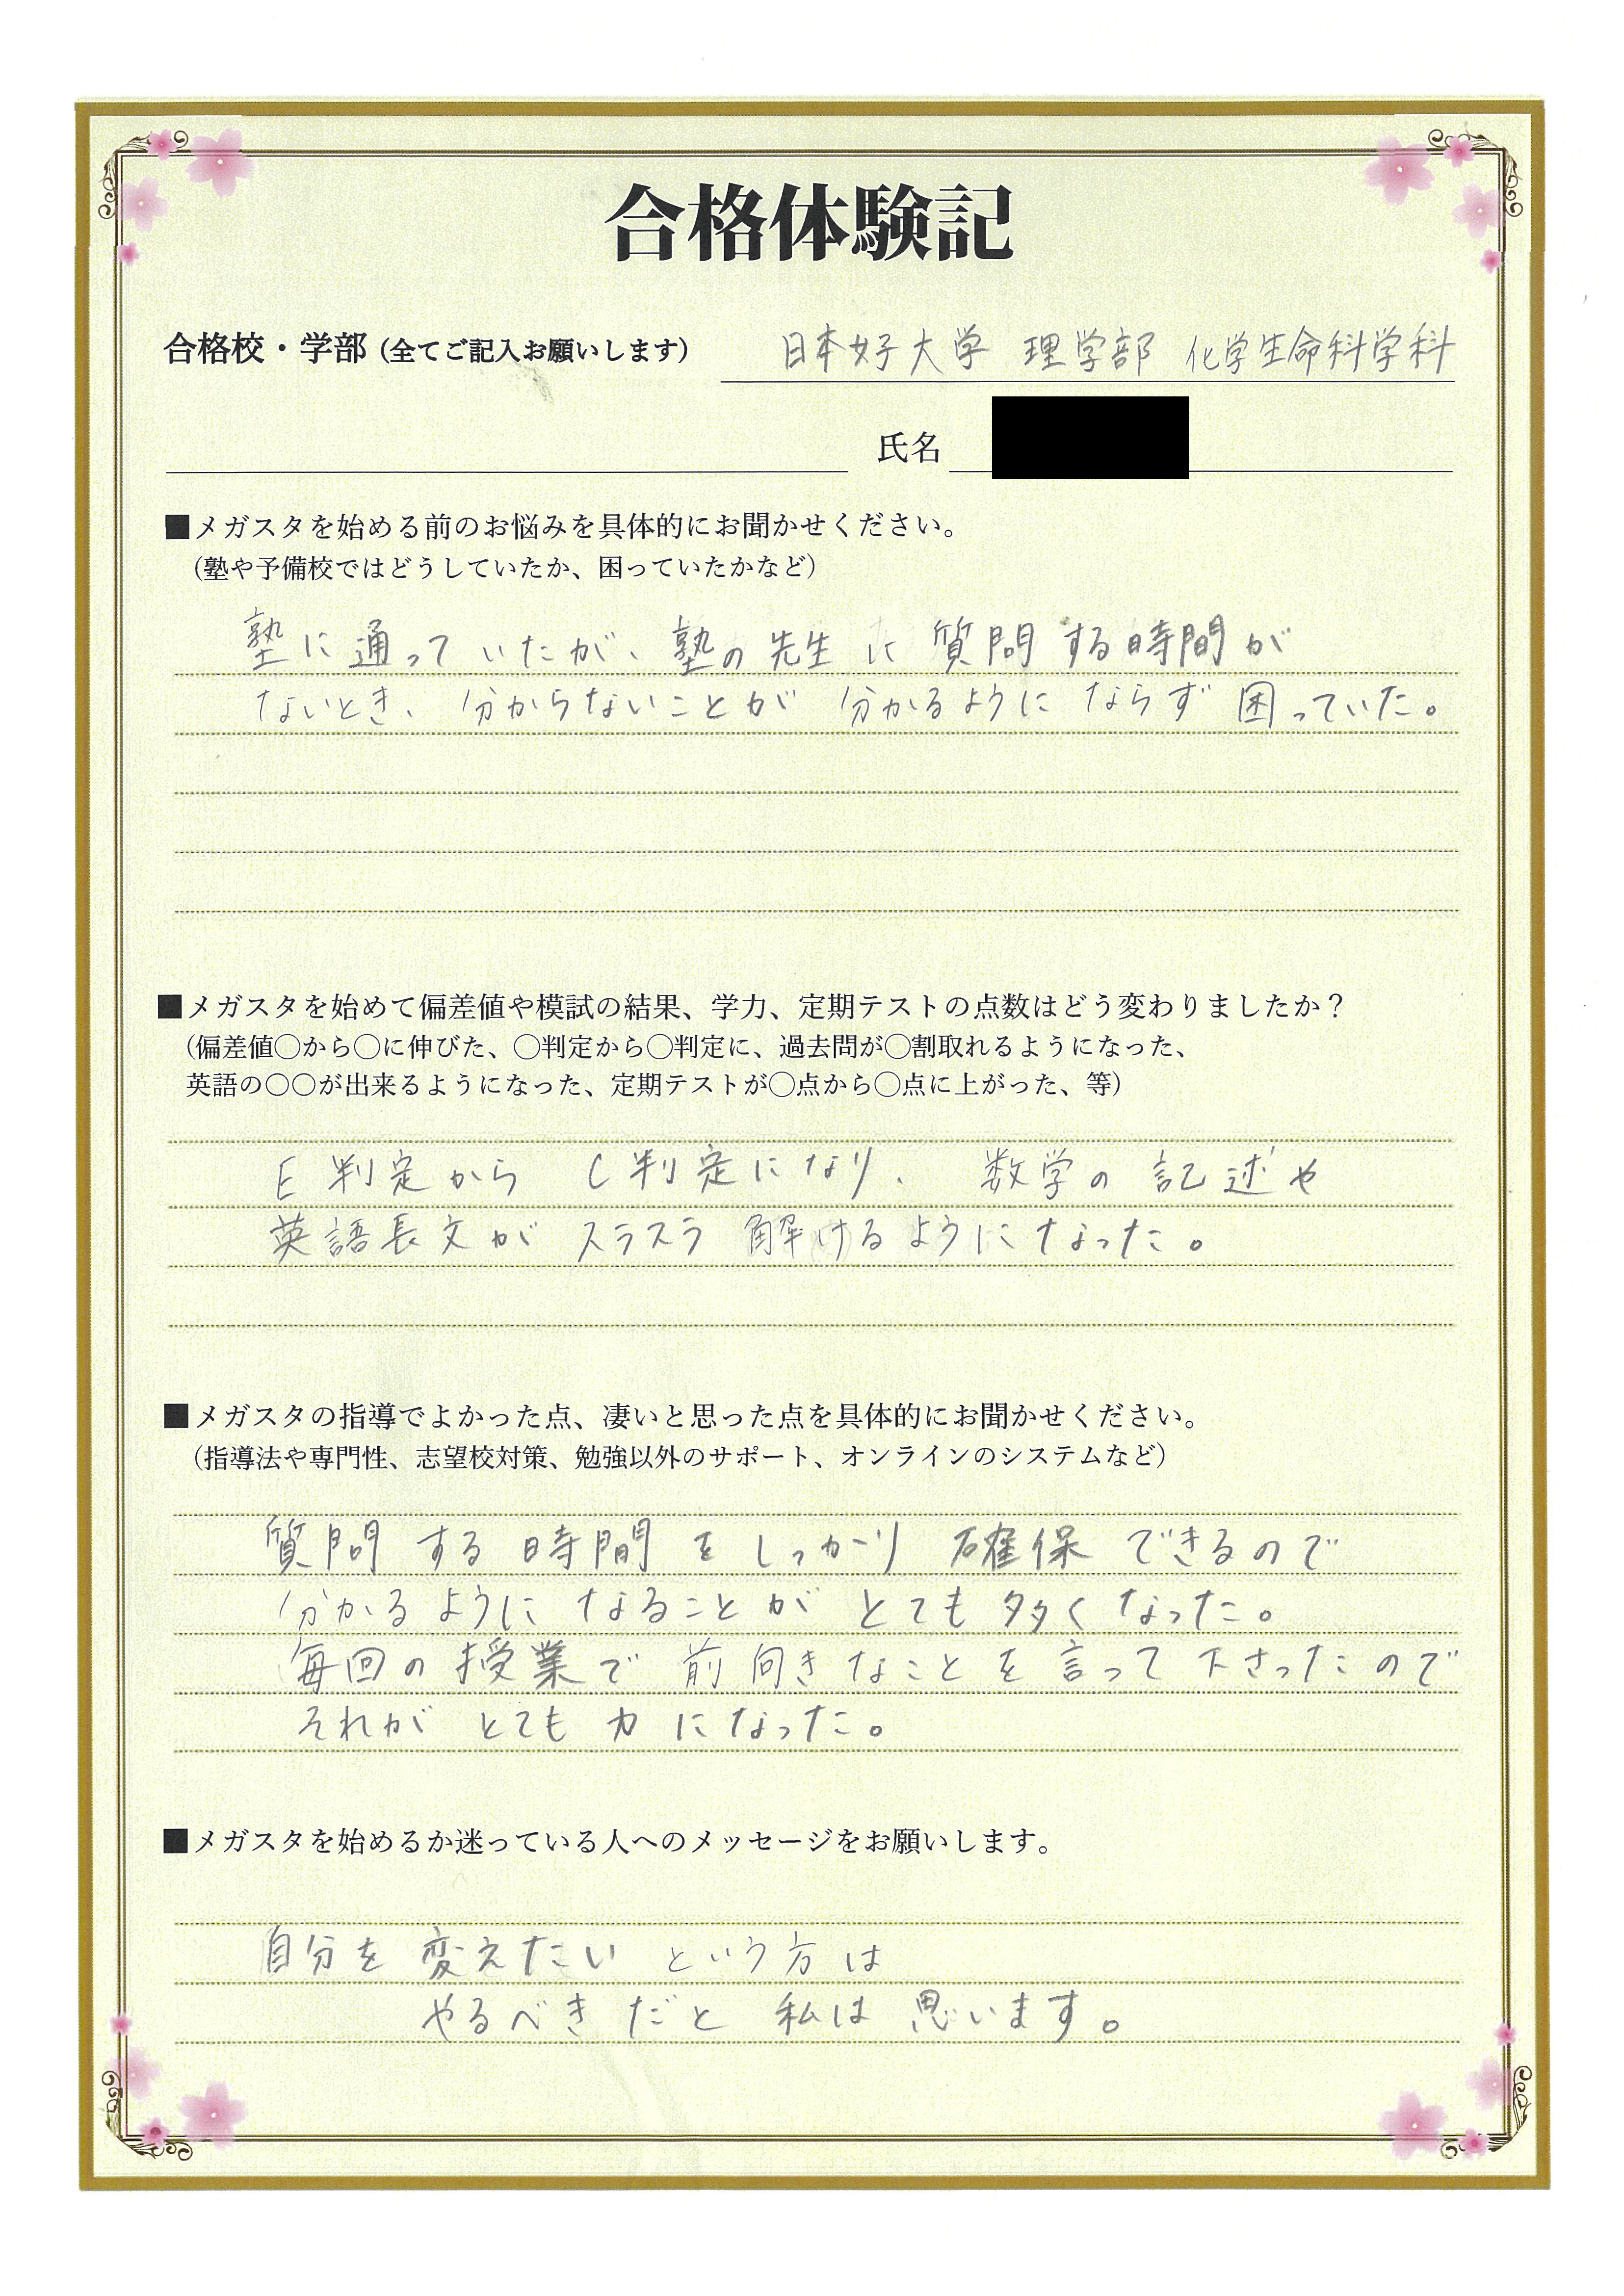 合格体験記
合格校・学部（全てご記入お願いします） 日本女子大学 理学部 化学生命科学科
氏名
■メガスタを始める前のお悩みを具体的にお聞かせください。
（塾や予備校ではどうしていたか、困っていたかなど）
塾に通っていたが、塾の先生に質問する時間が
ないとき、分からないことが分かるようにならず困っていた。
■メガスタを始めて偏差値や模試の結果、学力、定期テストの点数はどう変わりましたか？
（偏差値〇から〇に伸びた、〇判定から〇判定に、過去問が〇割取れるようになった、
英語の〇〇が出来るようになった、定期テストが〇点から〇点に上がった、等）
E判定から C判定になり、数学の記述や
英語長文がスラスラ解けるようになった。
■メガスタの指導でよかった点、凄いと思った点を具体的にお聞かせください。
（指導法や専門性、志望校対策、勉強以外のサポート、オンラインのシステムなど）
質問する時間をしっかり確保できるので
分かるようになることがとても多くなった。
毎回の授業で前向きなことを言って下さったので
それがとても力になった。
■メガスタを始めるか迷っている人へのメッセージをお願いします。
自分を変えたいという方は
やるべきだと私は思います。